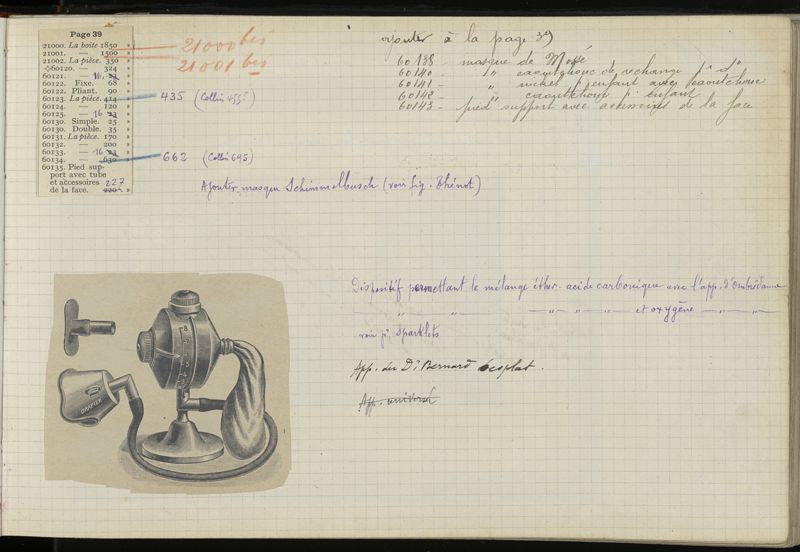 Page 39
21000. La boîte 1850 »
21001. — 1500 »
21002. La pièce. 350 »
60120. — 324 »
60121. — 16 23 »
60122. Fixe. 68 »
60122. Pliant. 90 »
60123. La pièce. 414 »
60124. — 120 »
60125. — 16 23 »
60130. Simple. 25 »
60130. Double. 35 »
60131. La pièce. 170 »
60132. — 200 »
60133. — 16 23 »
60134. — 630 »
60135. Pied sup-
port avec tube
et accessoires 227
de la face. 220 »
21000 bis
21001 bis
435 (Collin 455)
662 (Collin 695)
Ajouter masque Schimmelbusch (voir fig. Thénot)
ajouter à la page 39
60138 - masque de
60140 - " caoutchouc de rechange
60141 - " nickel p. enfant avec caoutchouc
60142 - caoutchouc p. enfant
60143 - pied support avec accessoires de la face
Dispositif permettant le mélange éther-acide carbonique avec l'app. d'Ombrédanne
— " — " — — " — " — " — et oxygène — " — " —
voir p. Sparklets
App. du Dr Bernard
App. universel
DRAPIER